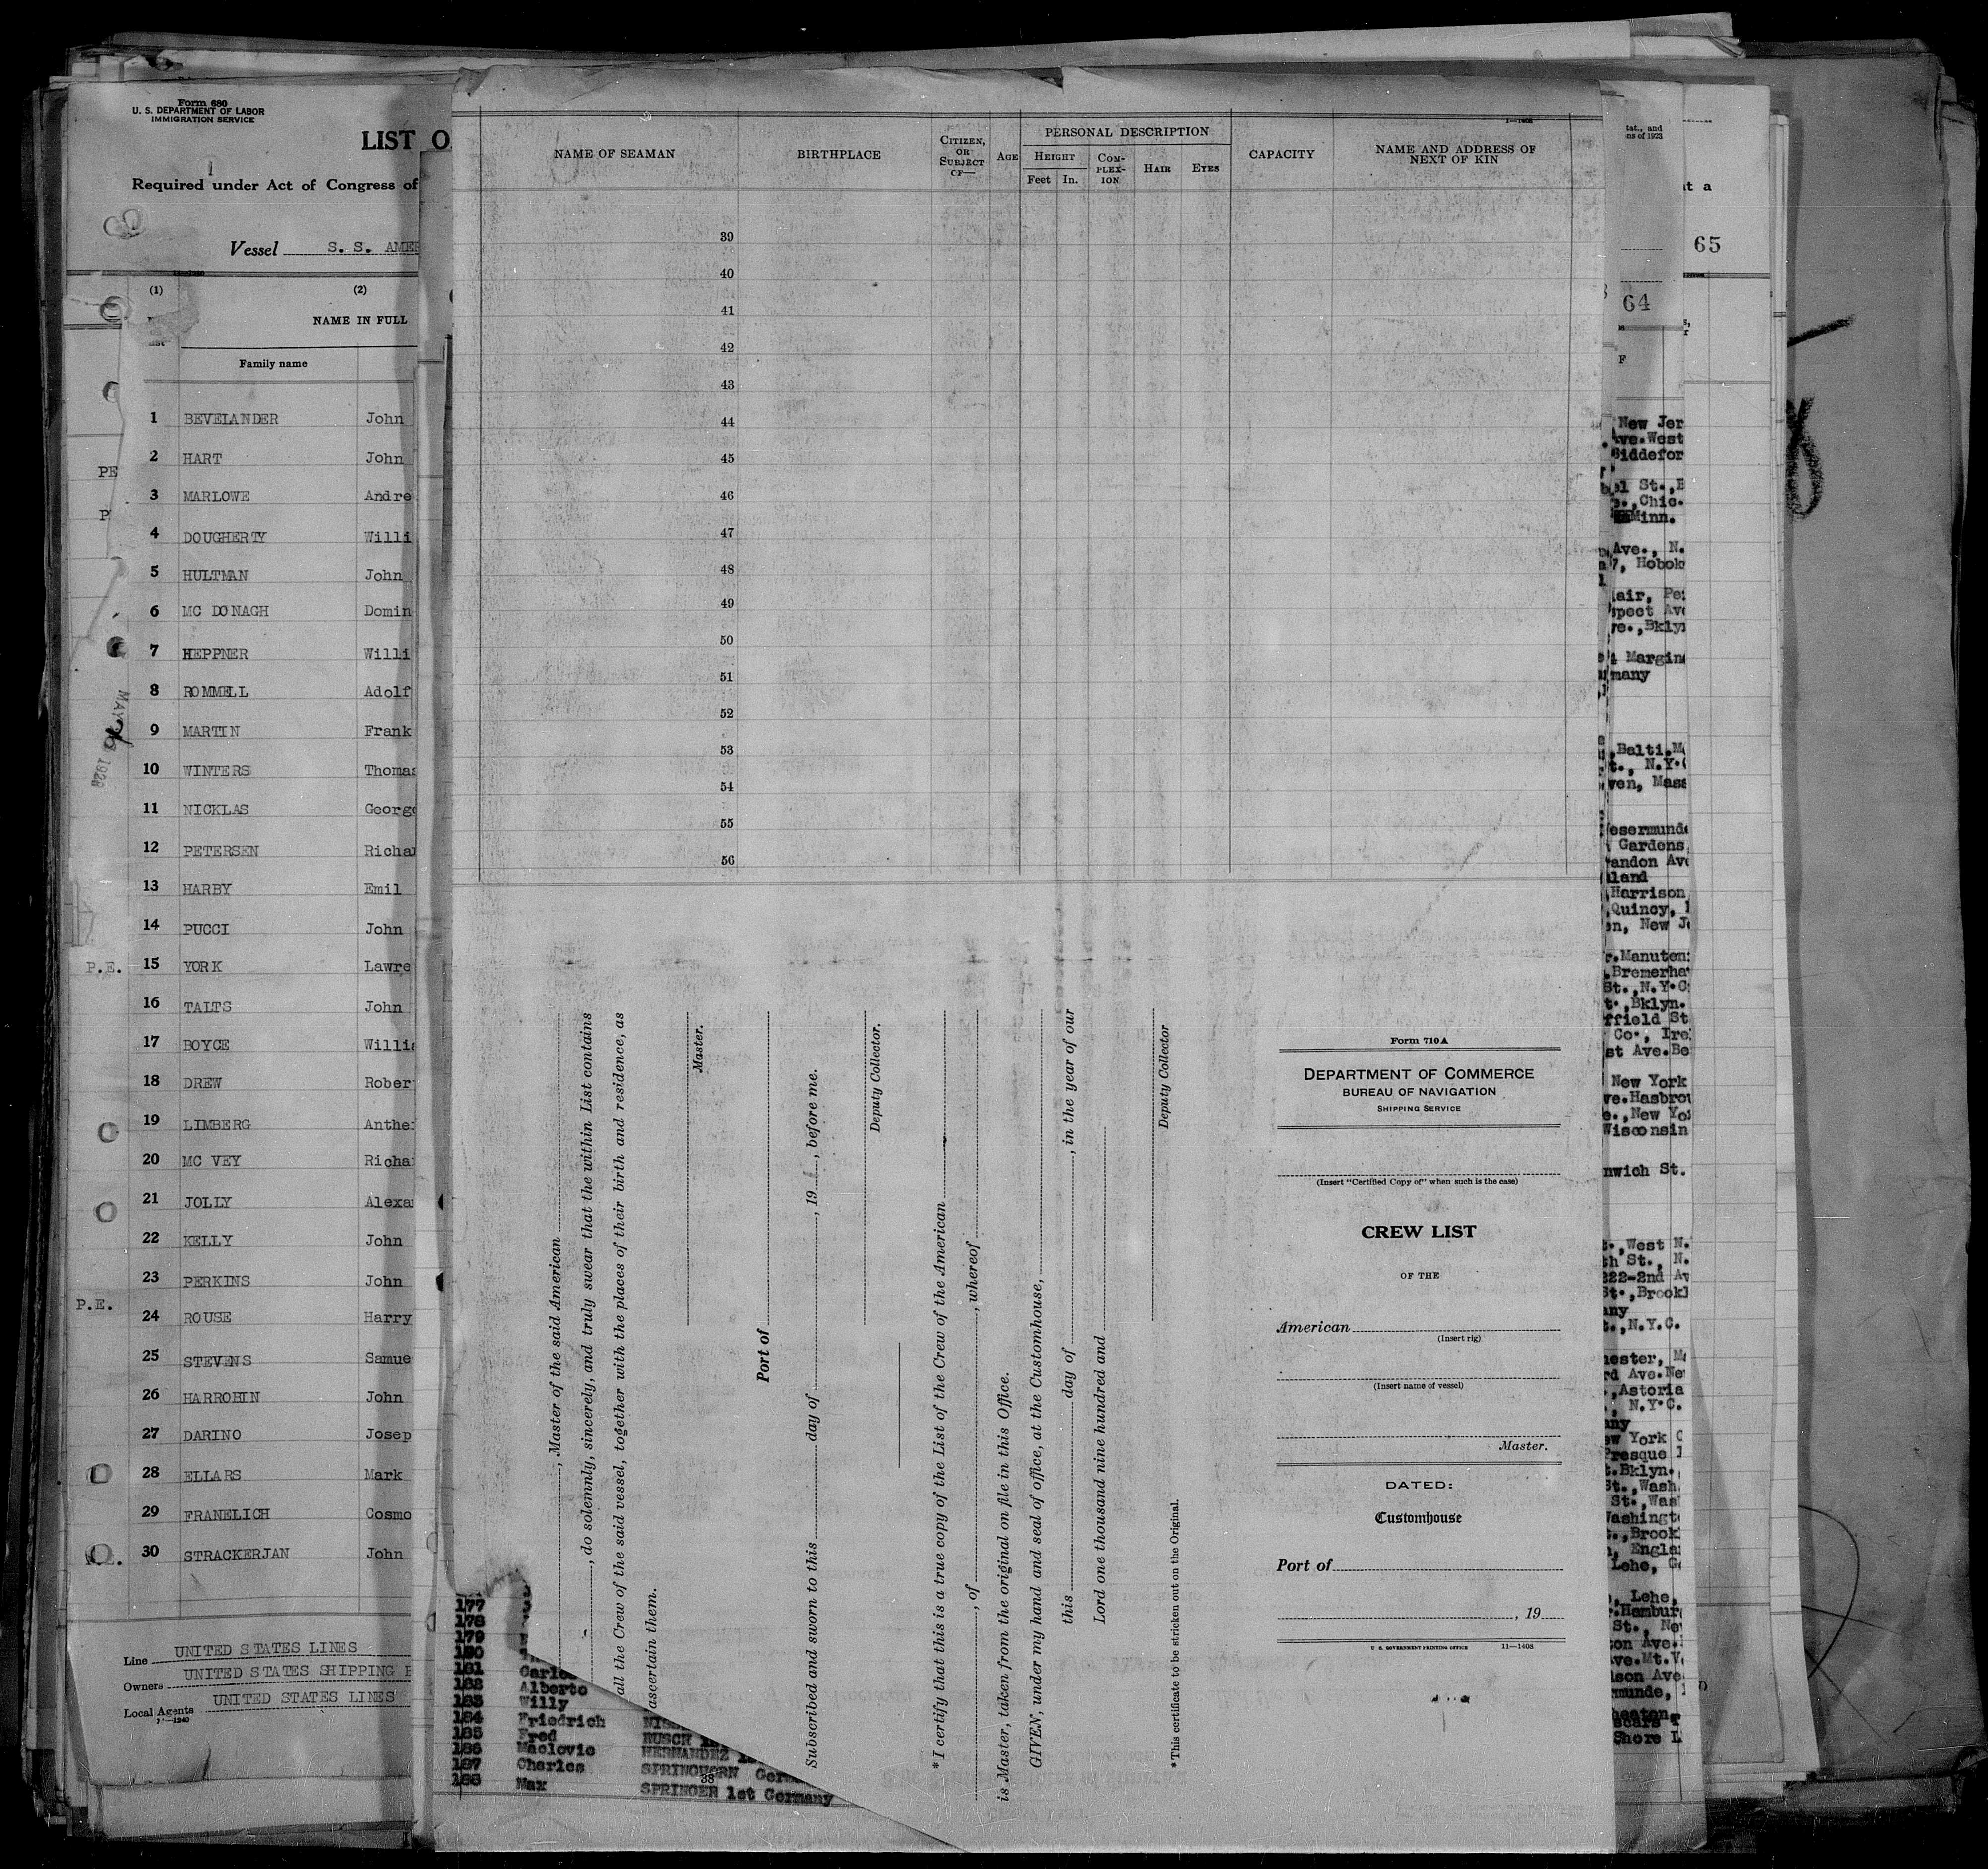 Form 680
U. S. DEPARTMENT OF LABOR
IMMIGRATION SERVICE
LIST O
Required under Act of Congress of
Vessel S. S. AME
(1) (2)
NAME IN FULL
Family name
1 BEVELANDER John
2 HART John
3 MARLOWE Andre
4 DOUGHERTY Willi
5 HULTMAN John
6 MC DONAGH Domin
7 HEPPNER Willi
8 ROMMELL Adolf
9 MARTIN Frank
10 WINTERS Thomas
11 NICKLAS George
12 PETERSEN Richa
13 HARBY Emil
14 PUCCI John
P.E. 15 YORK Lawre
16 TALTS John
17 BOYCE Willia
18 DREW Rober
19 LIMBERG Anthe
20 MC VEY Richa
21 JOLLY Alexa
22 KELLY John
23 PERKINS John
P.E. 24 ROUSE Harry
25 STEVENS Samue
26 HARROHIN John
27 DARINO Josep
28 ELLARS Mark
29 FRANELICH Cosmo
30 STRACKERJAN John
Line UNITED STATES LINES
Owners UNITED STATES SHIPPING
Local Agents UNITED STATES LINES
PE
P
MAY 1926
NAME OF SEAMAN
BIRTHPLACE
CITIZEN, OR SUBJECT OF—
AGE
PERSONAL DESCRIPTION
HEIGHT
Feet In.
COMPLEXION
HAIR
EYES
CAPACITY
NAME AND ADDRESS OF NEXT OF KIN
39
40
41
42
43
44
45
46
47
48
49
50
51
52
53
54
55
56
, Master of the said American
, do solemnly, sincerely, and truly swear that the within List contains
all the Crew of the said vessel, together with the places of their birth and residence, as
ascertain them.
Master.
Port of
Subscribed and sworn to this day of , 19 , before me.
Deputy Collector.
*I certify that this is a true copy of the List of the Crew of the American
, of , whereof
is Master, taken from the original on file in this Office.
GIVEN, under my hand and seal of office, at the Customhouse,
this day of , in the year of our
Lord one thousand nine hundred and
Deputy Collector
*This certificate to be stricken out on the Original.
Form 710A
DEPARTMENT OF COMMERCE
BUREAU OF NAVIGATION
SHIPPING SERVICE
(Insert "Certified Copy of" when such is the case)
CREW LIST
OF THE
American
(Insert rig)
(Insert name of vessel)
Master.
DATED:
Customhouse
Port of
, 19
U. S. GOVERNMENT PRINTING OFFICE 11—1408
177
178
179
180
181 Carlos
182 Alberto
183 Willy
184 Friedrich
185 Fred BUSCH
186 Maclovio HERNANDEZ
187 Charles SPRINGHORN Germ
188 Max SPRINGER 1st Germany
38
tat., and
ns of 1923
at a
65
64
New Jer
Ave.West
Biddefor
St.,
Chic.
Minn.
Ave., N.
7, Hobok
air,
spect Av
ve.,Bkly
Margin
many
,Balti.M
N.Y.
ven, Mass
esermund
Gardens
andon Av
land
Harrison
,Quincy,
en, New J
r.Manuten
.Bremerha
St.,N.Y.C
t.,Bklyn.
ffield St
Co., Ire
st Ave.Be
New York
ve.Hasbro
e.,New Yo
Wisconsin
nwich St.
.,West N.
th St., N.
222-2nd Av
St.,Brook
any
.,N.Y.C.
hester, M
rd Ave.Ne
,Astoria
, N.Y.C.
any
ew York C
Presque I
.Bklyn.
St.,Wash
St.,Was
Washingt
.,Brook
, Engla
Lehe, G
, Lehe,
.Hambur
St., Ne
ton Ave.
ve.Mt.V
lson Ave
rmunde,
heaton
Shore L